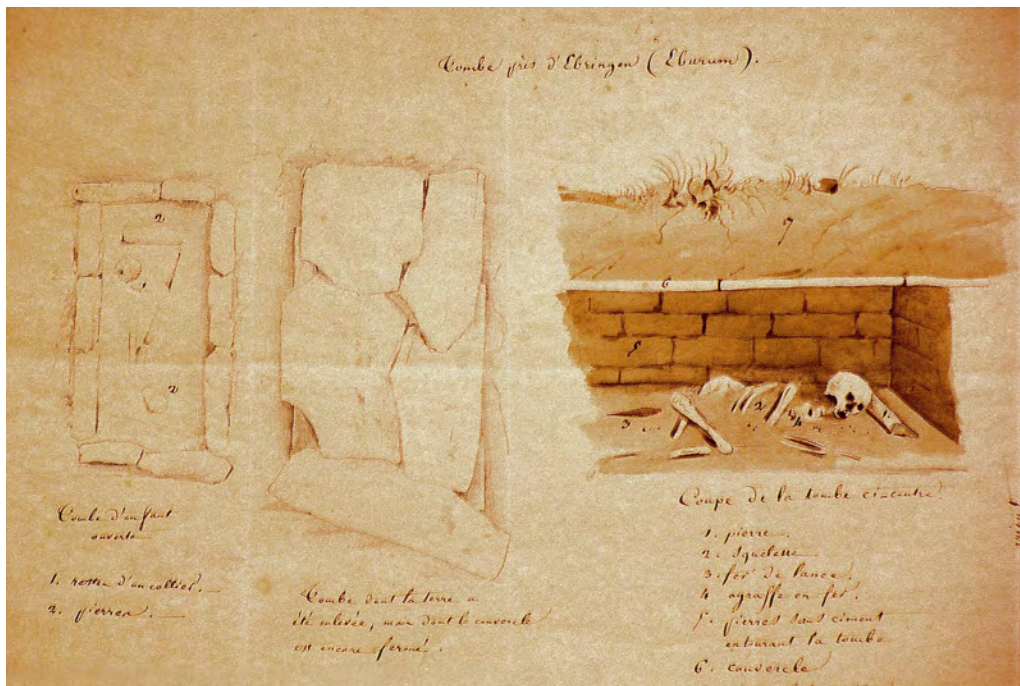 Tombe près d'Ebringen (Eburum).
2
1
2
Tombe d'enfant
ouverte
1. restes d'un collier.
2. pierres.
Tombe dont la terre a
été enlevée, mais dont le couvercle
est encore fermé.
7
6
5
3
2
4
1
Coupe de la tombe ci-contre.
1. pierre.
2. squelette
3. fer de lance.
4 agraffe en fer.
5. pierres sans ciment
entourant la tombe
6. couvercle